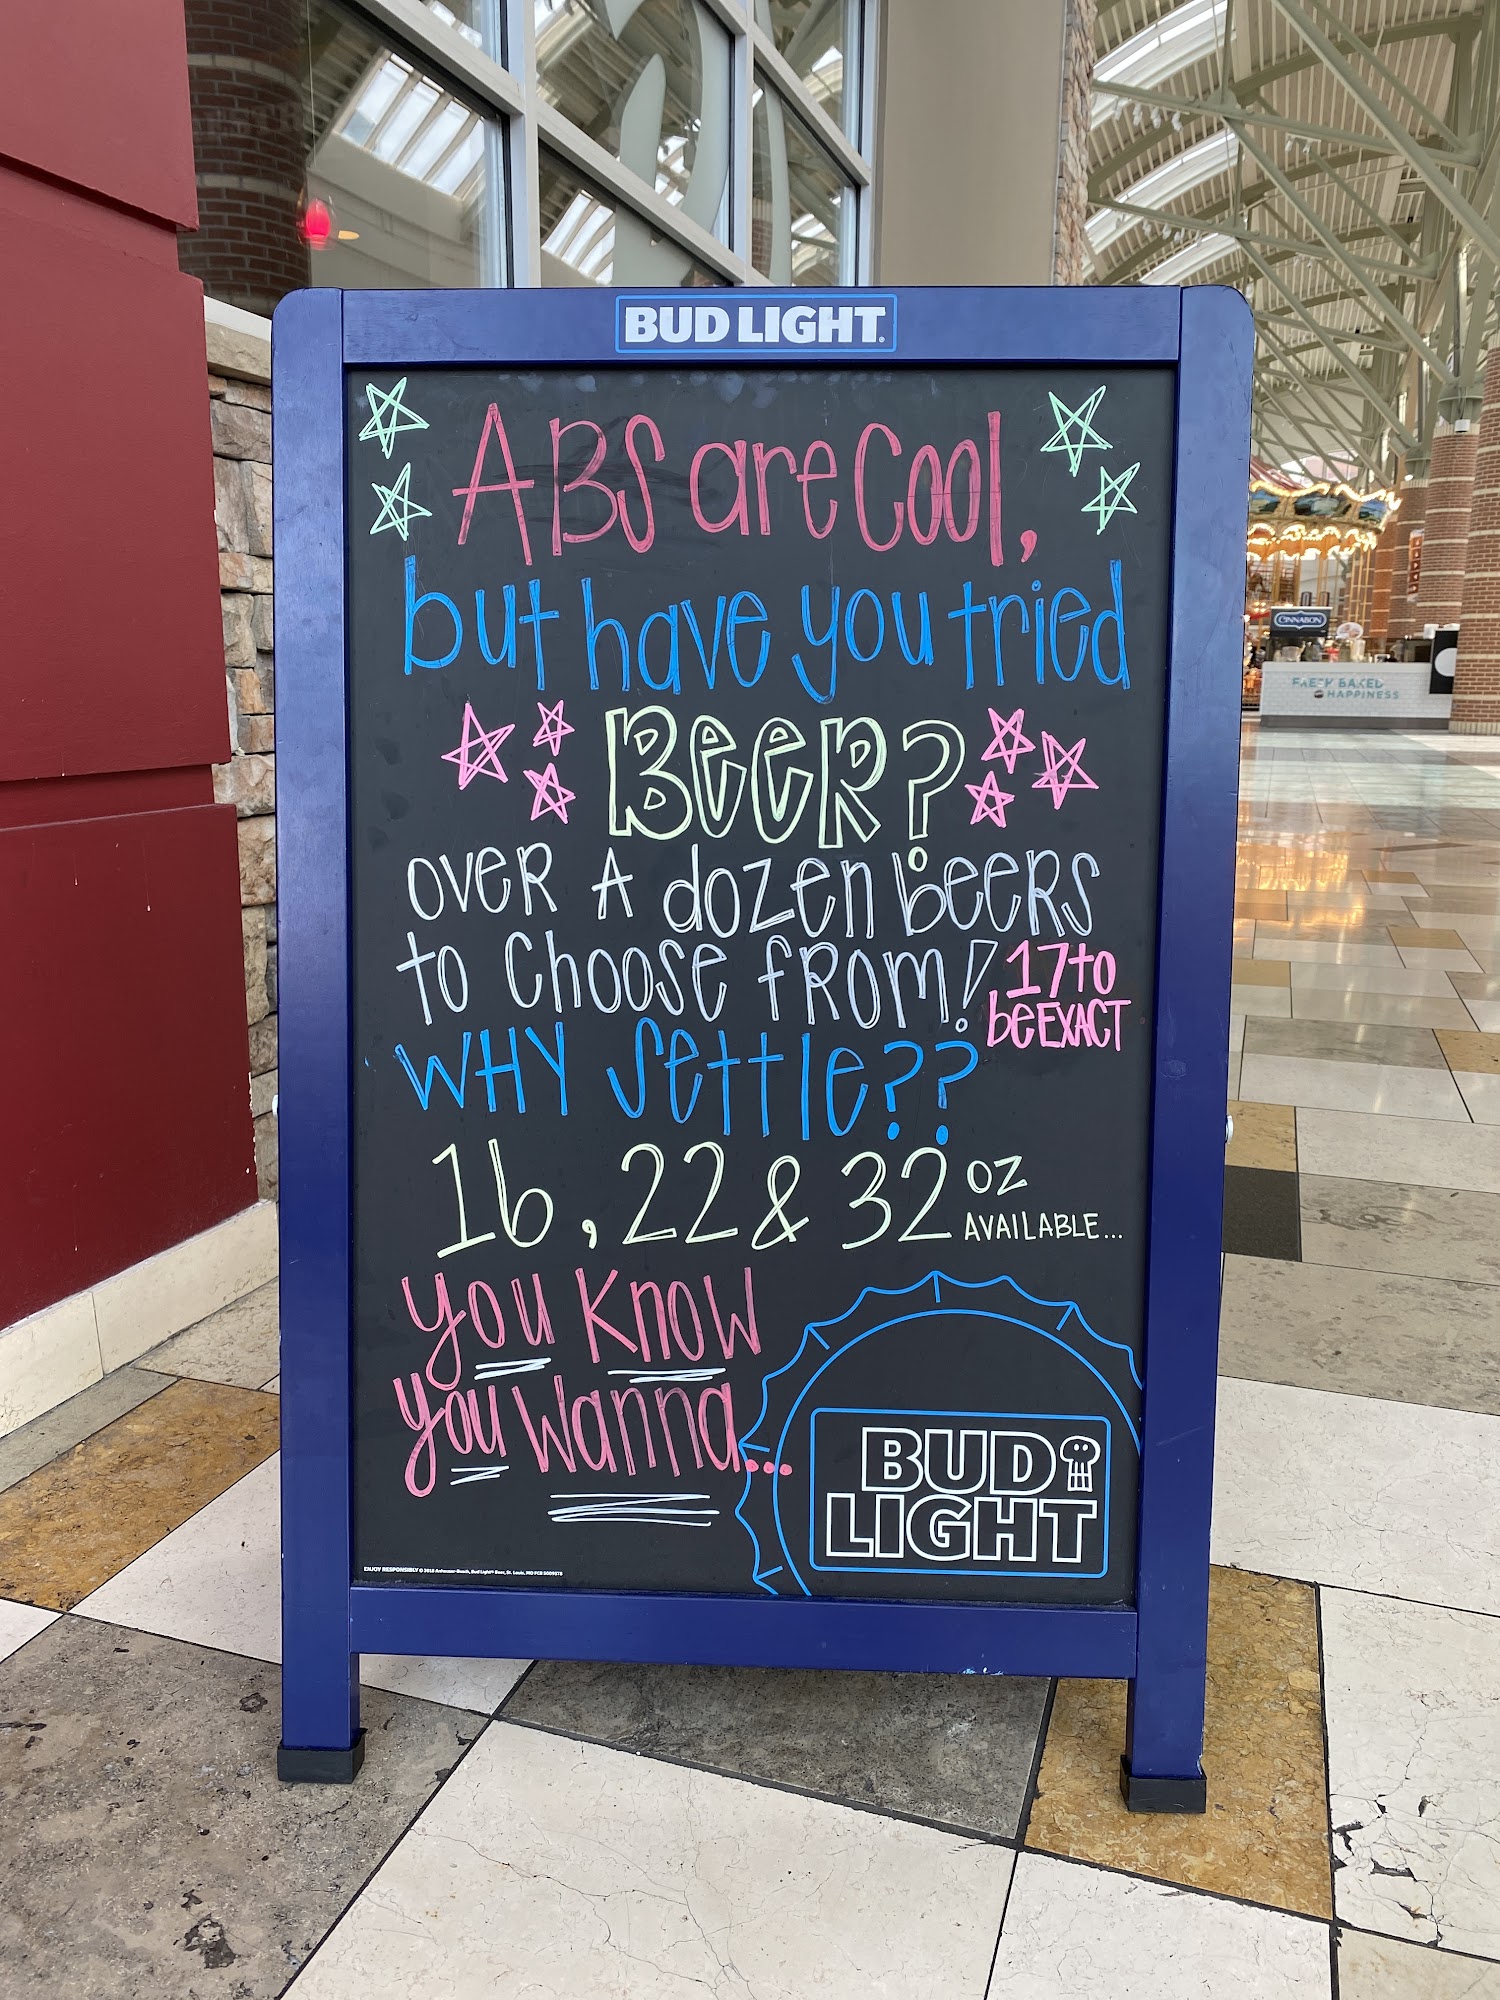 BUD LIGHT.
ABS are Cool,
but have you tried
BEER?
OVER A dozen beeRS
to Choose fROM!
17 to
be EXACT
WHY settle??
16, 22 & 32 oz
AVAILABLE...
you know
you wanna...
BUD
LIGHT
ENJOY RESPONSIBLY © 2018 Anheuser-Busch, Bud Light® Beer, St. Louis, MO
CINNABON
FRESH BAKED
HAPPINESS